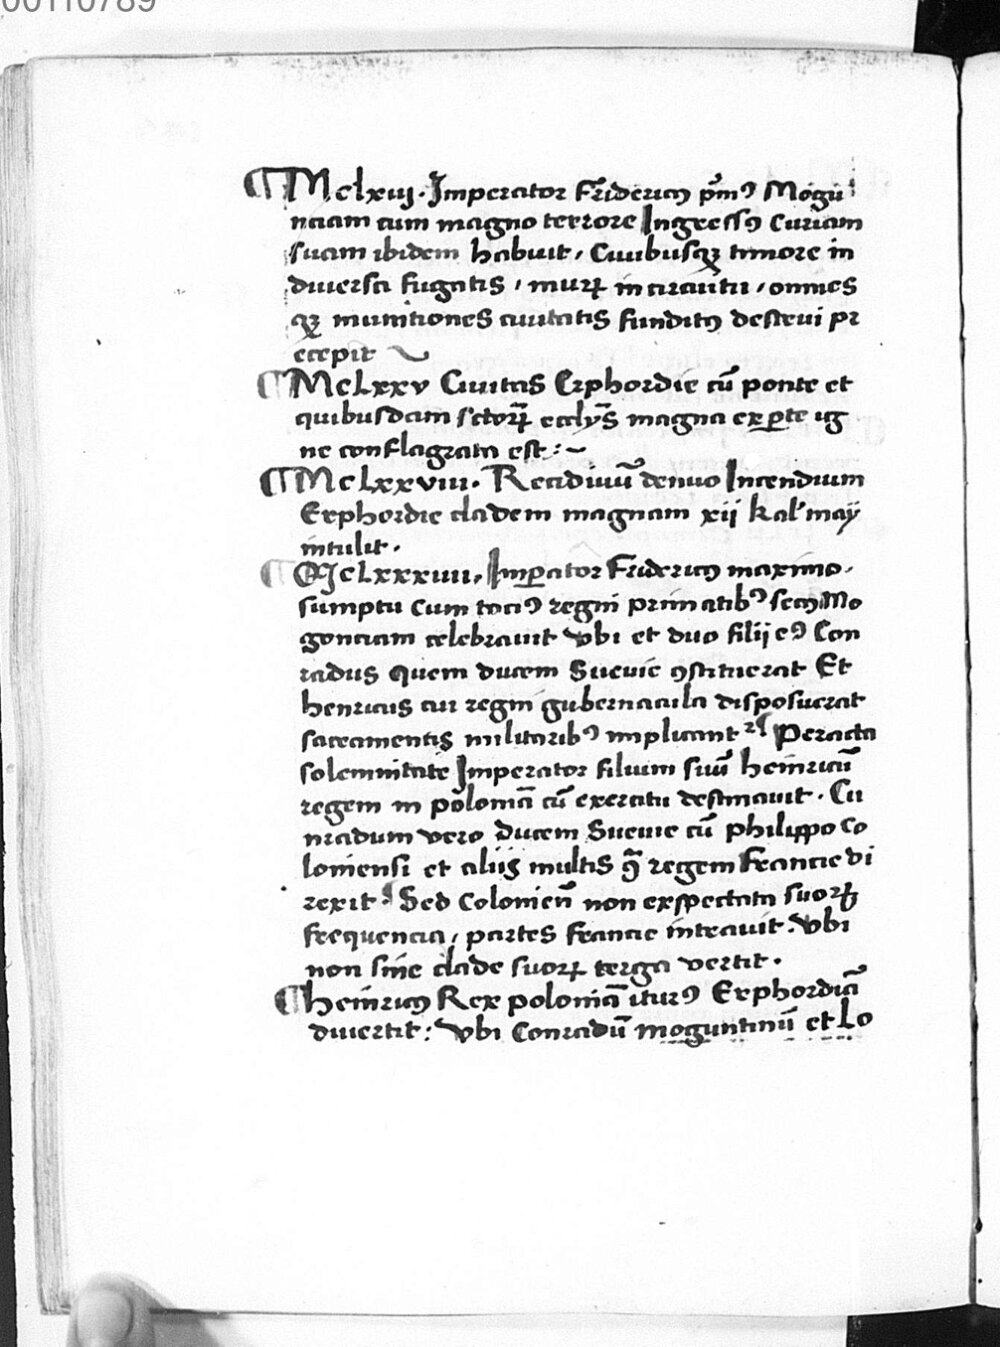 00110789
¶ Mclxiij. Imperator Fridericꝰ pͥmꝰ Mogū
nciam cum magno terrore Ingressꝰ Curiam
suam ibidem habuit, Ciuibusqꝫ timore in
diuersa fugatis, murꝝ in circuitu, omnes
qꝫ munitiones ciuitatis funditꝰ destrui pr
ecepit
¶ Mclxxv Ciuitas Erphordie cū ponte et
quibusdam sctorꝝ ecclijs magna ex ꝑte ig
ne conflagrata est :~
¶ Mclxxviii. Recidiuū denuo Incendium
Erphordie cladem magnam xij kal' may
intulit.
¶ Mclxxxiiii. Imꝑator Fridericꝰ maximo.
sumptu cum tociꝰ regni primatibꝰ secꝰ Mo
gonciam celebrauit vbi et duo filij eꝰ Con
radus quem ducem Sueuie ꝯstituerat Et
henricus cui regni gubernacula disposuerat
sacramentis militaribꝰ implicantᷣ ¶ Peracta
solemnitate Imperator filium suū heinricū
regem in polomā cū exercitu destinauit. Cu
nradum vero Ducem Sueuie cū philippo co
loniensi et alijs multis ꝯ̄ regem Francie di
rexit ¶ Sed Colonieñ non expectata suorꝝ
frequencia, partes Francie intrauit. vbi
non sine clade suorꝝ terga vertit.
¶ heinricꝰ Rex polomā iturꝰ Erphordiā
diuertit: vbi Conradū moguntinū et Lo